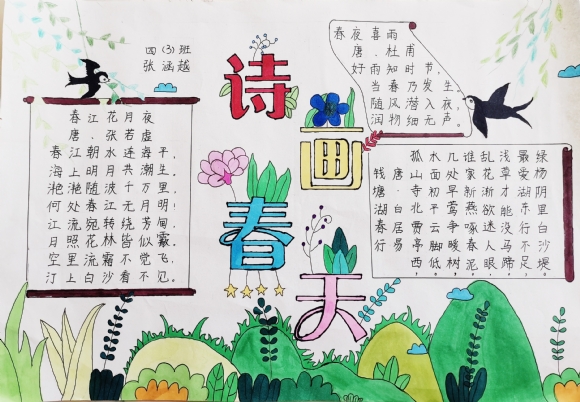 四(3)班
张涵越
诗画春天
春江花月夜
唐.张若虚
春江潮水连海平,
海上明月共潮生。
滟滟随波千万里,
何处春江无月明!
江流宛转绕芳甸,
月照花林皆似霰。
空里流霜不觉飞,
汀上白沙看不见。
春夜喜雨
唐.杜甫
好雨知时节,
当春乃发生。
随风潜入夜,
润物细无声。
钱塘湖春行
唐·白居易
孤山寺北贾亭西
水面初平云脚低
几处早莺争暖林
谁家新燕啄春泥
乱花渐欲迷人眼
浅草才能没马蹄
最爱湖东行不足
绿杨阴里白沙堤